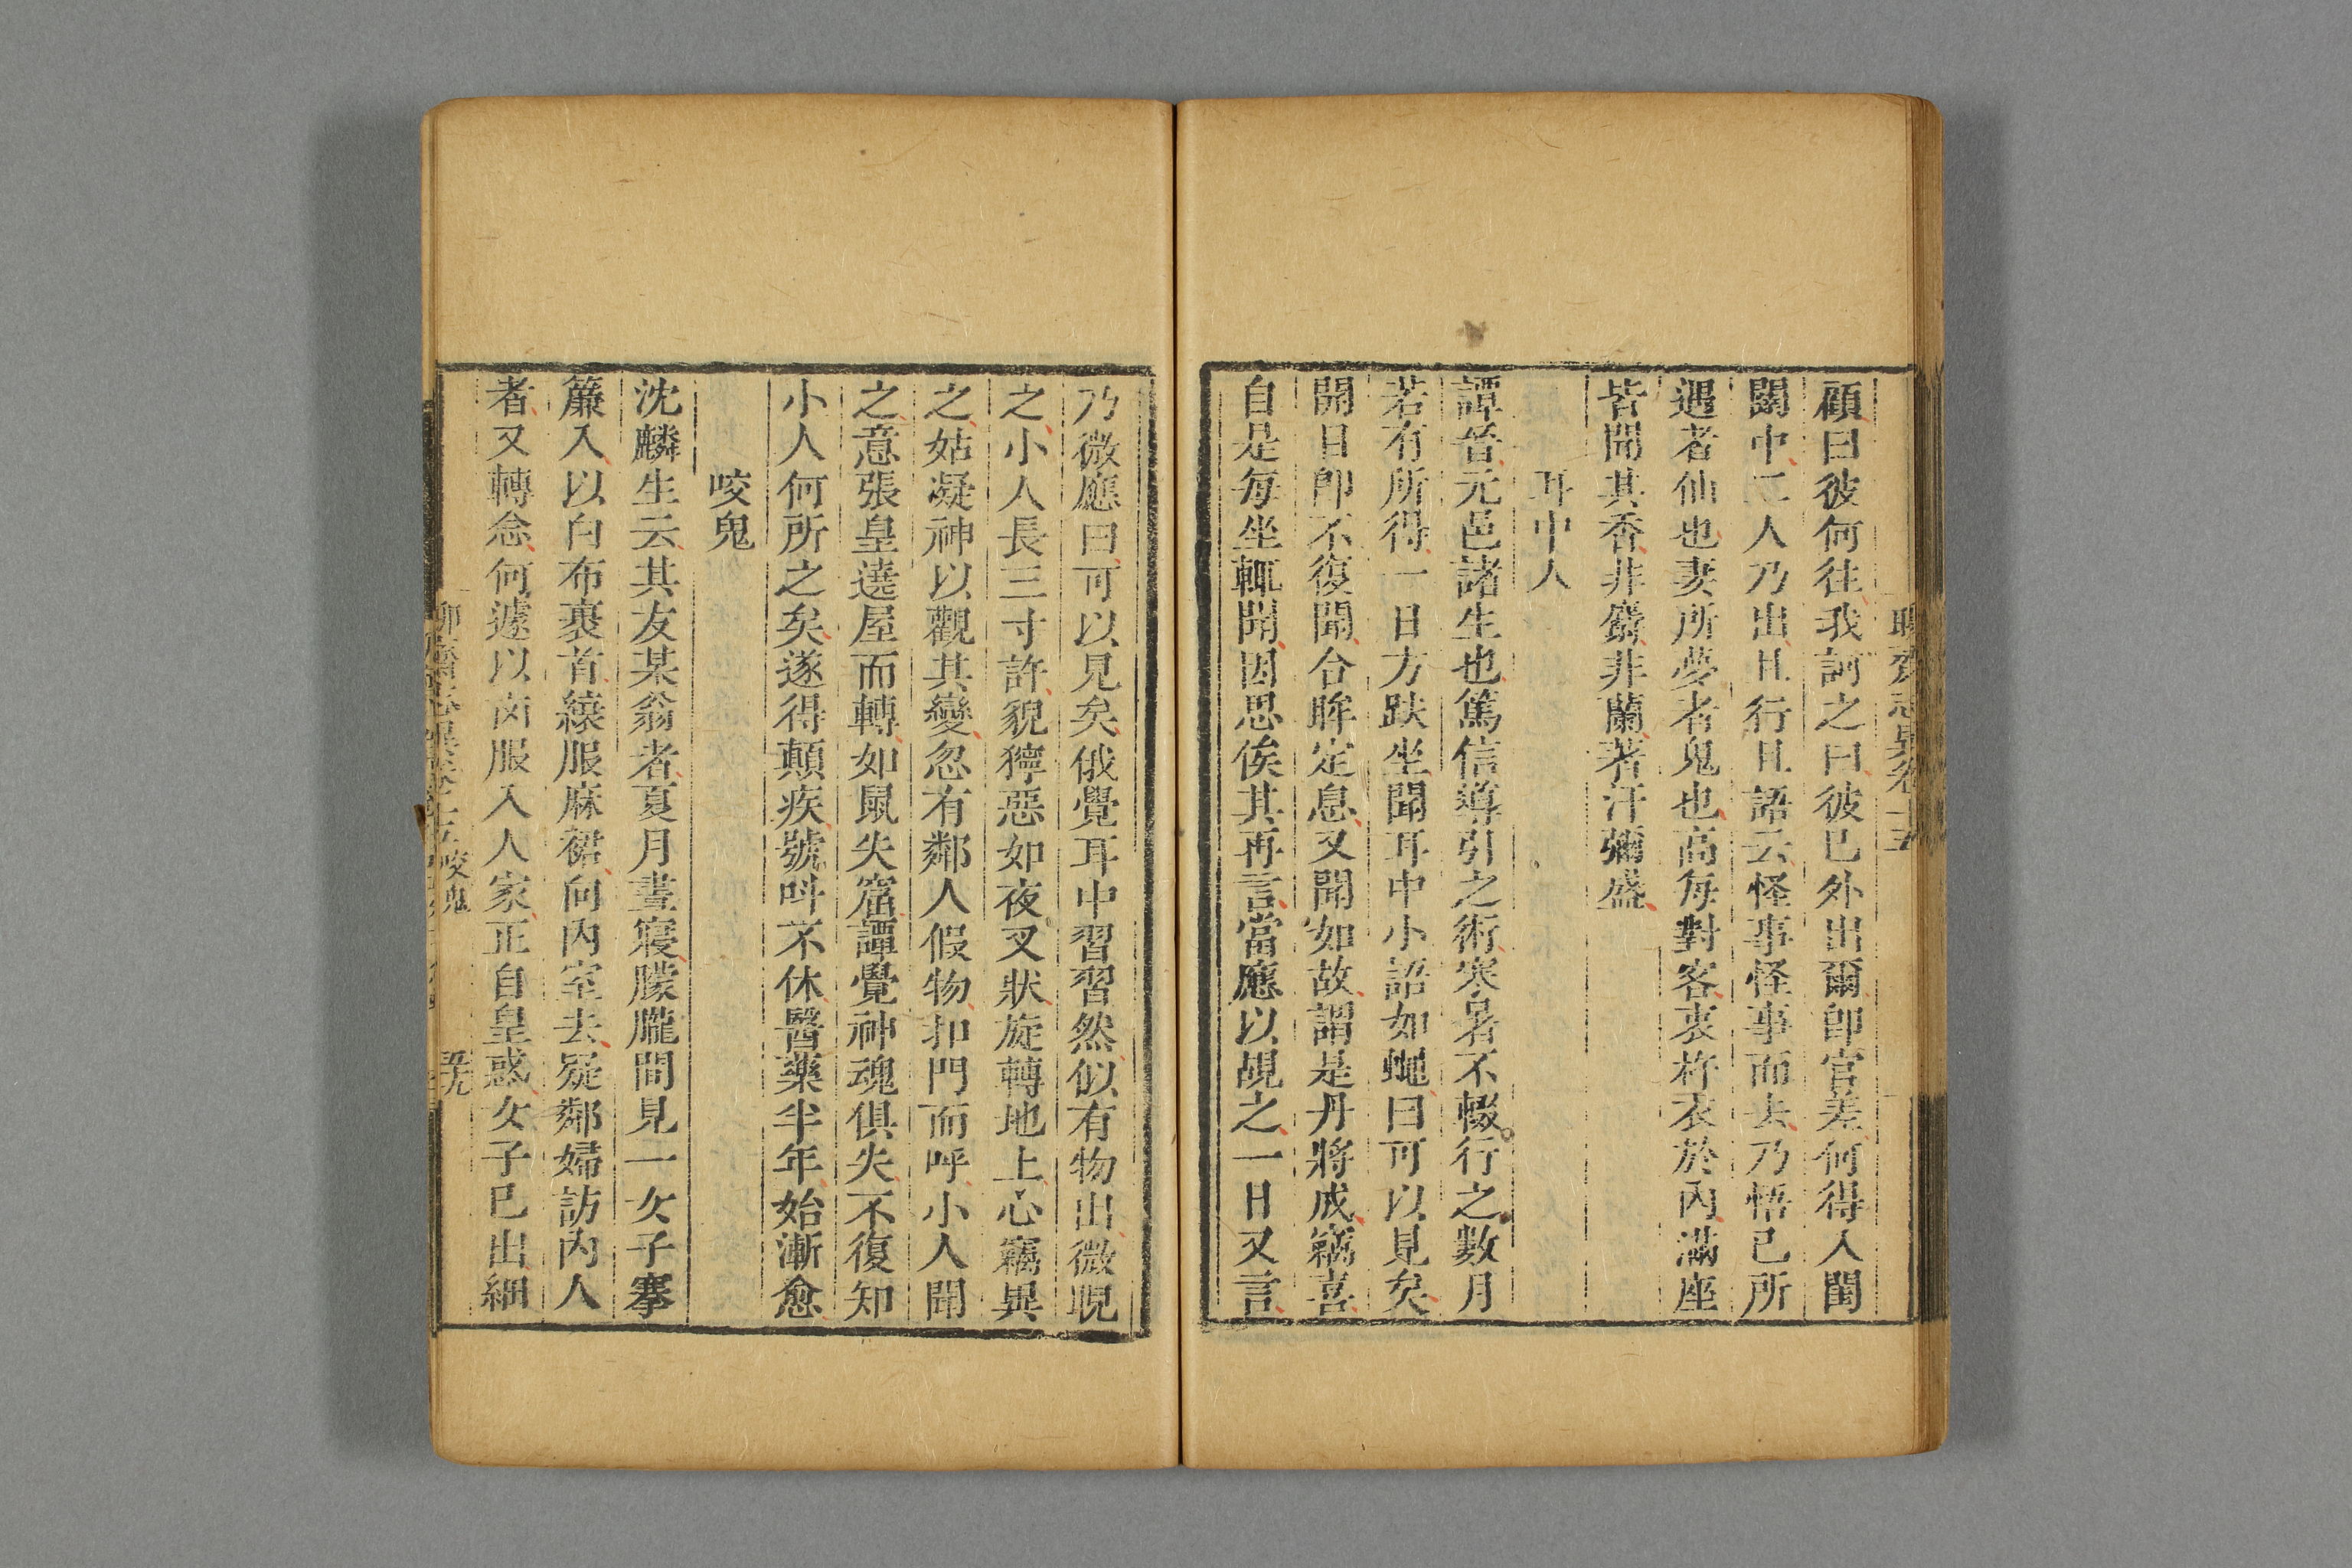 顧曰彼何往我訶之曰彼已外出爾卽官差何得入閨
闥中二人乃出且行且語云怪事怪事而去乃悟己所
遇者仙也妻所夢者鬼也高每對客衷杵衣於內滿座
皆聞其香非麝非蘭著汗彌盛
耳中人
譚晉元邑諸生也篤信導引之術寒暑不輟行之數月
若有所得一日方趺坐聞耳中小語如蠅曰可以見矣
開目卽不復聞合眸定息又聞如故謂是丹將成竊喜
自是每坐輒聞因思俟其再言當應以覘之一日又言
乃微應曰可以見矣俄覺耳中習習然似有物出微睨
之小人長三寸許貌獰惡如夜叉狀旋轉地上心竊異
之姑凝神以觀其變忽有鄰人假物扣門而呼小人聞
之意張皇遶屋而轉如鼠失窟譚覺神魂俱失不復知
小人何所之矣遂得顛疾號呌不休醫藥半年始漸愈
咬鬼
沈麟生云其友某翁者夏月晝寢朦朧間見一女子搴
簾入以白布裹首縗服麻裙向內室去疑鄰婦訪內人
者又轉念何遽以凶服入人家正自皇惑女子已出細
咬鬼